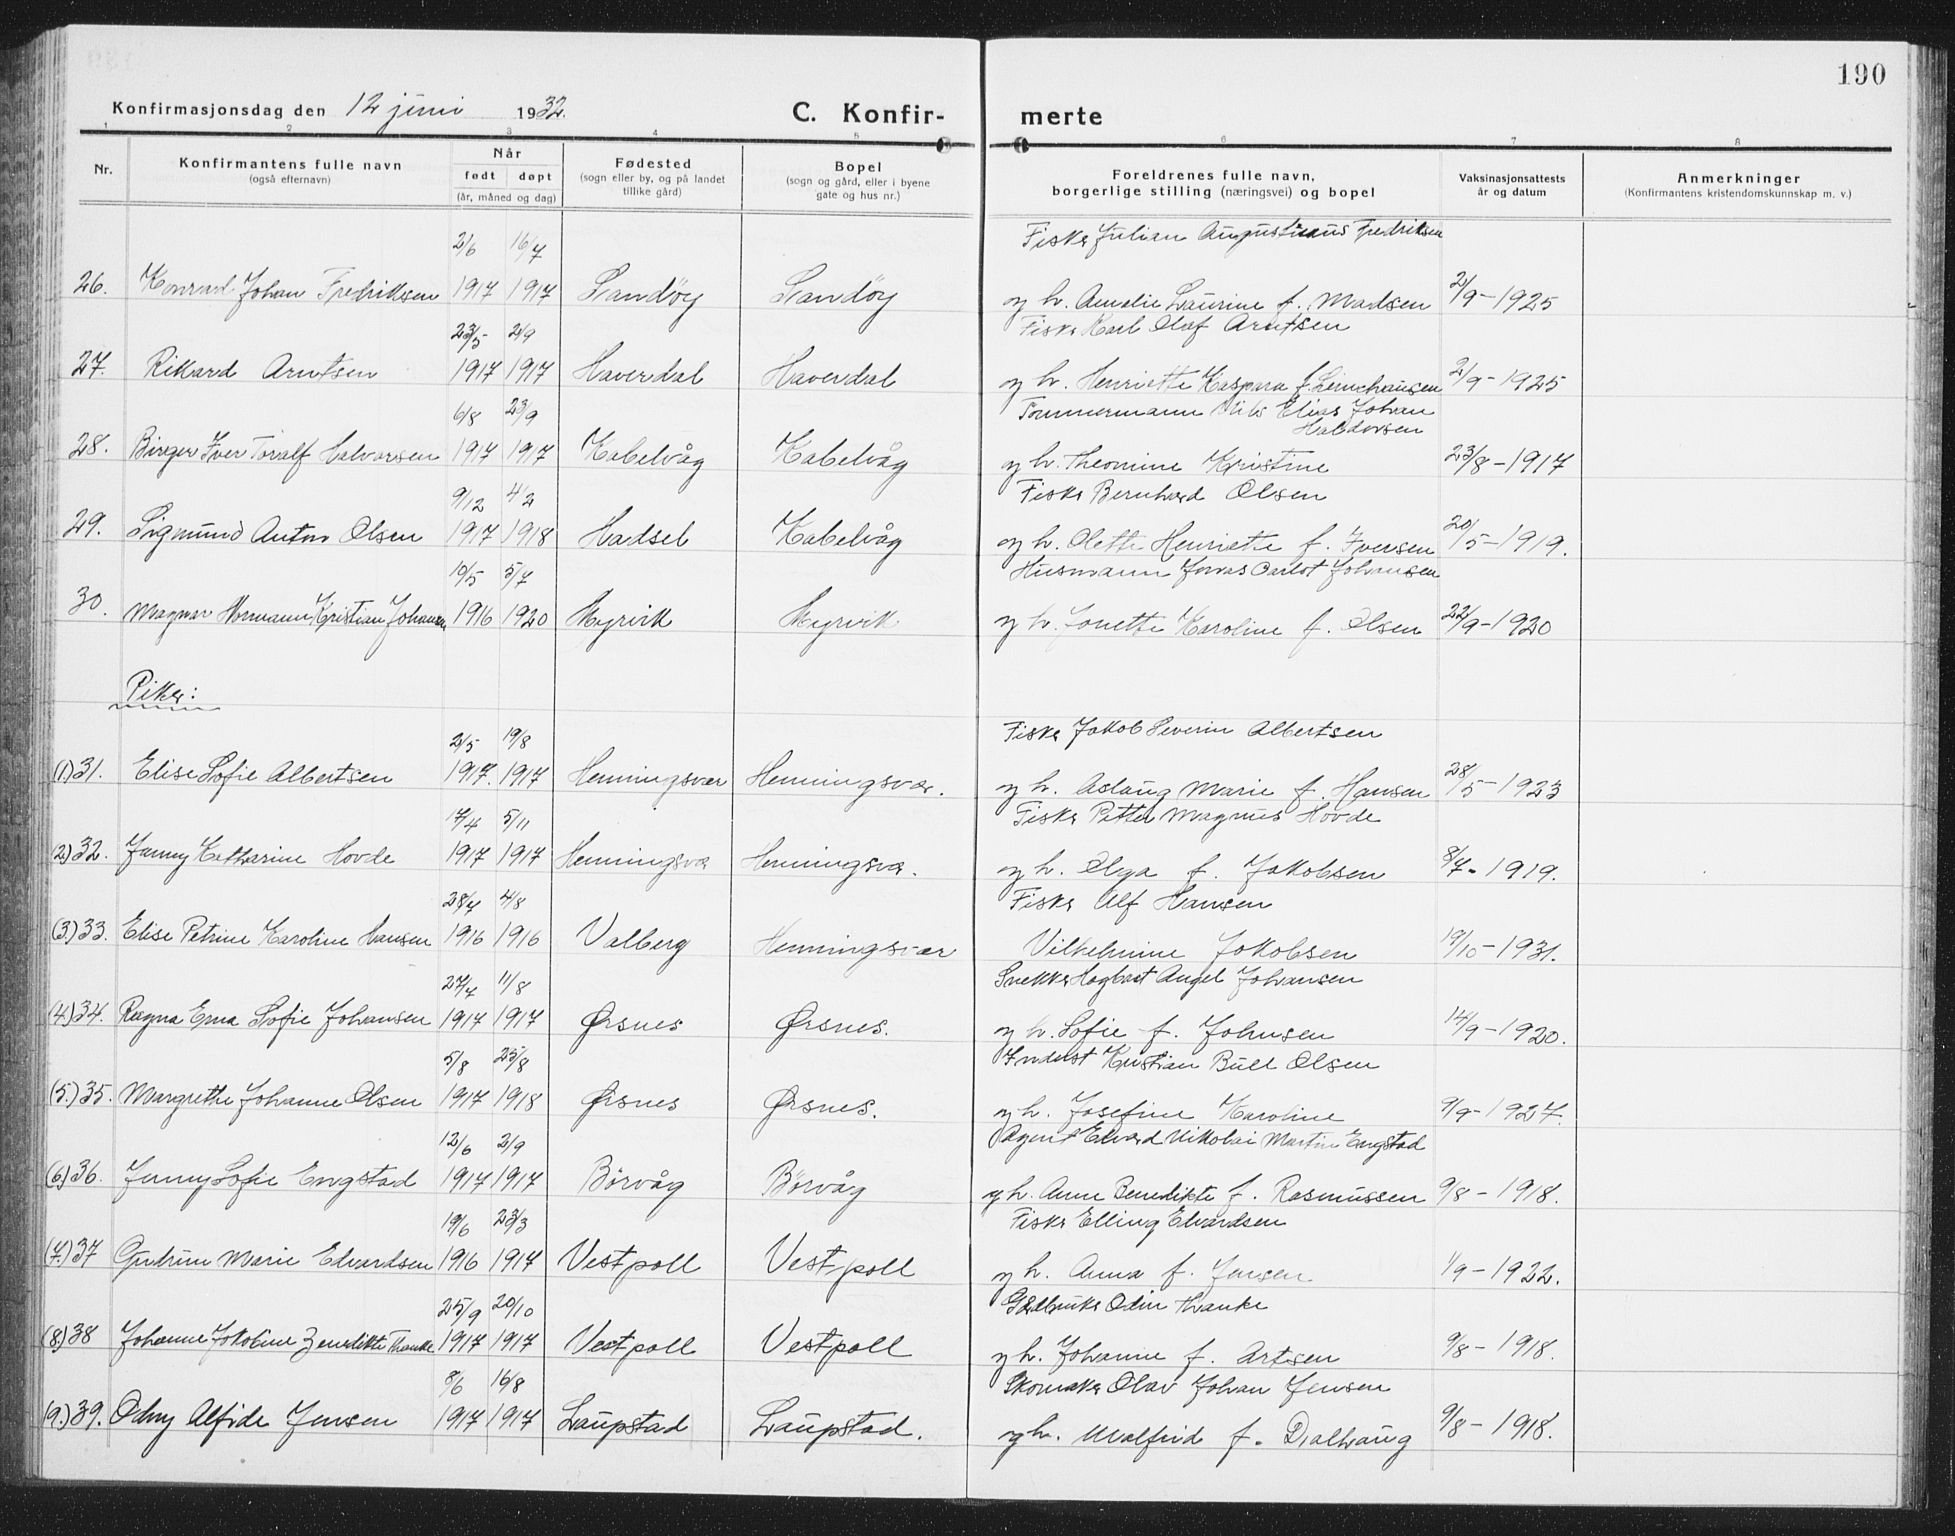 190
Konfirmasjonsdag den 12 juni 1932.
C. Konfir-
merte
1 2 3 4 5 6 7 8
Nr.
Konfirmantens fulle navn
(også efternavn)
Når
født døpt
(år, måned og dag)
Fødested
(sogn eller by, og på landet
tillike gård)
Bopel
(sogn og gård, eller i byene
gate og hus nr.)
Foreldrenes fulle navn,
borgerlige stilling (næringsvei) og bopel
Vaksinasjonsattests
år og datum
Anmerkninger
(Konfirmantens kristendomskunnskap m. v.)
2/6 16/7 Fisker Julian Augustinus Fredriksen
26. Konrad Johan Fredriksen 1917 1917 Sandöy Sandöy og h. Amalie Laurine f. Madsen 2/9-1925
23/5 2/9 Fisker Karl Olaf Arntsen
27. Rikard Arntsen 1917 1917 Haverdal Haverdal og h. Henriette Kaspara f. 2/9-1925
6/8 23/9 Tömmermann Nils Elias Johan
Haldorsen
28. Birger Iver Toralf Halvorsen 1917 1917 Kabelvåg Kabelvåg og h. Theomine Kristine 23/8-1917
9/12 4/2 Fisker Bernhard Olsen
29. Sigmund Anton Olsen 1917 1918 Hadsel Kabelvåg og h. Olette Henriette f. Iversen 20/5-1919.
10/5 5/7 Husmann Jonas Carlot Johansen
30. Magnar Hermann Kristian Johansen 1916 1920 Myrvik Myrvik og h. Jonette Karoline f. Olsen 22/9-1920
Piker:
2/5 19/8 Fisker Jakob Severin Albertsen
(1) 31. Elise Sofie Albertsen 1917. 1917 Henningsvær Henningsvær. og h. Aslaug Marie f. Hansen 28/5-1923
17/4 5/11 Fisker Petter Magnus Hovde
2) 32. Jenny Katharine Hovde 1917 1917 Henningsvær Henningsvær. og h. Olga f. Jakobsen 8/7-1919.
28/7 4/8 Fisker Alf Hansen
(3.) 33. Elise Petrine Karoline Hansen 1916 1916 Valberg Henningsvær Vilhelmine Jakobsen 19/10-1931.
27/7 11/8 Snekker Hagbart Angel Johansen
(4.) 34. Ragna Erna Sofie Johansen 1917 1917 Ørsnes Ørsnes. og h. Sofie f. Johnsen 14/9-1920.
5/8 25/8 Kristian Bull Olsen
(5.) 35. Margrethe Johanne Olsen 1917 1918 Ørsnes Ørsnes. og h. Josefine Karoline 9/9-1927.
12/6 2/9 Agent Edvard Nikolai Martin Engstad
(6.) 36. Jenny Sofie Engstad 1917 1917 Börvåg Börvåg og h. Anne Benedikte f. Rasmussen 9/8-1918.
19/6 23/3 Fisker Elling Edvardsen
(7.) 37 Gudrun Marie Edvardsen 1916 1917 Vestpoll Vestpoll og h. Anna f. Jensen 1/9-1922.
25/9 20/10 Gårdbruker Odin Hanke
(8.) 38 Johanne Jakobine Benedikte Hanke 1917 1917 Vestpoll Vestpoll og h. Johanne f. Artsen 9/8-1918.
8/6 16/8 Skomaker Olav Johan Jensen
(9.) 39. Odny Alfide Jensen 1917 1917 Laupstad Laupstad. og h. Malfrid f. Dalhaug 9/8-1918.